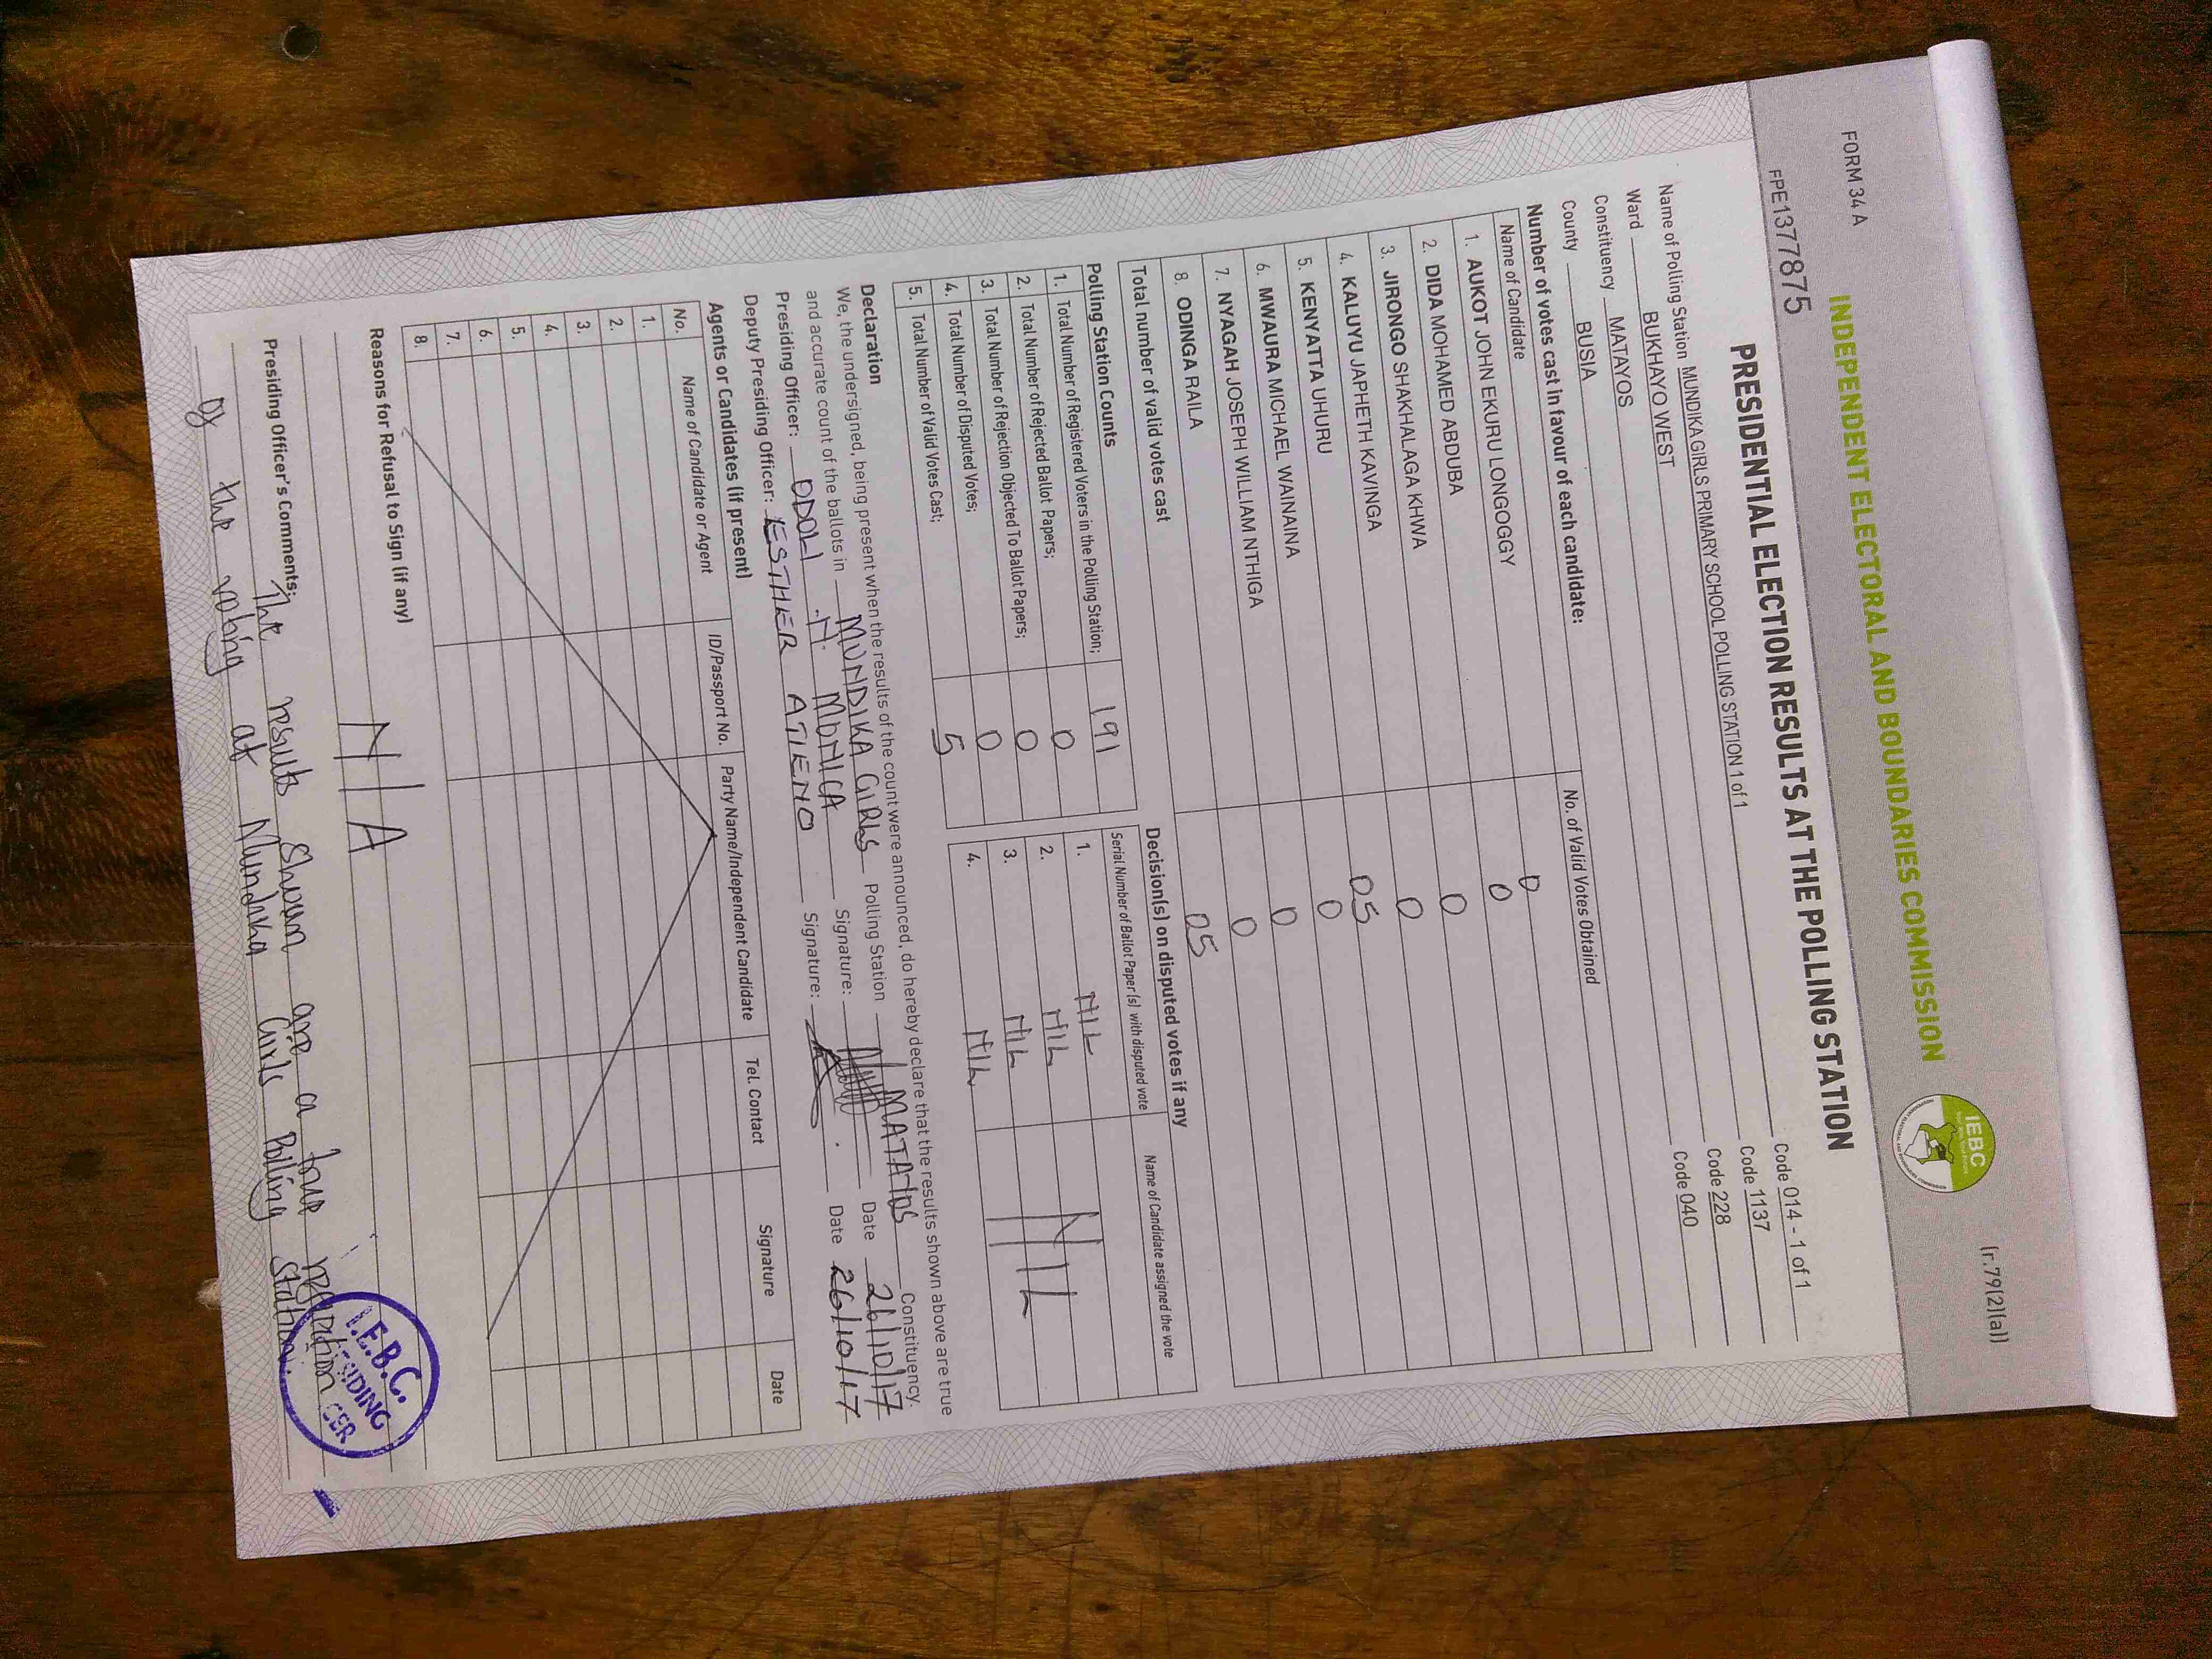 FORM 34 A
(r.79(2)(a))
INDEPENDENT ELECTORAL AND BOUNDARIES COMMISSION
IEBC
FPE1377875
PRESIDENTIAL ELECTION RESULTS AT THE POLLING STATION
Name of Polling Station MUNDIKA GIRLS PRIMARY SCHOOL POLLING STATION 1 of 1 Code 014 - 1 of 1
Ward BUKHAYO WEST Code 1137
Constituency MATAYOS Code 228
County BUSIA Code 040
Number of votes cast in favour of each candidate:
Name of Candidate No. of Valid Votes Obtained
1. AUKOT JOHN EKURU LONGOGGY 0
2. DIDA MOHAMED ABDUBA 0
3. JIRONGO SHAKHALAGA KHWA 0
4. KALUYU JAPHETH KAVINGA 0
5. KENYATTA UHURU 05
6. MWAURA MICHAEL WAINAINA 0
7. NYAGAH JOSEPH WILLIAM NTHIGA 0
8. ODINGA RAILA 0
Total number of valid votes cast 05
Polling Station Counts
1. Total Number of Registered Voters in the Polling Station; 191
2. Total Number of Rejected Ballot Papers; 0
3. Total Number of Rejection Objected To Ballot Papers; 0
4. Total Number of Disputed Votes; 0
5. Total Number of Valid Votes Cast; 5
Decision(s) on disputed votes if any
Serial Number of Ballot Paper(s) with disputed vote Name of Candidate assigned the vote
1. NIL
2. NIL
3. NIL
4. NIL
NIL
Declaration
We, the undersigned, being present when the results of the count were announced, do hereby declare that the results shown above are true
and accurate count of the ballots in MUNDIKA GIRLS Polling Station MATAYOS Constituency.
Presiding Officer: ODOLI .N. MONICA Signature: Date 26/10/17
Deputy Presiding Officer: ESTHER ATIENO Signature: Date 26/10/17
Agents or Candidates (if present)
No. Name of Candidate or Agent ID/Passport No. Party Name/Independent Candidate Tel. Contact Signature Date
1.
2.
3.
4.
5.
6.
7.
8.
Reasons for Refusal to Sign (if any)
N/A
Presiding Officer's Comments: The results shown are a true
of the voting at Mundika Girls Polling station.
I.E.B.C.